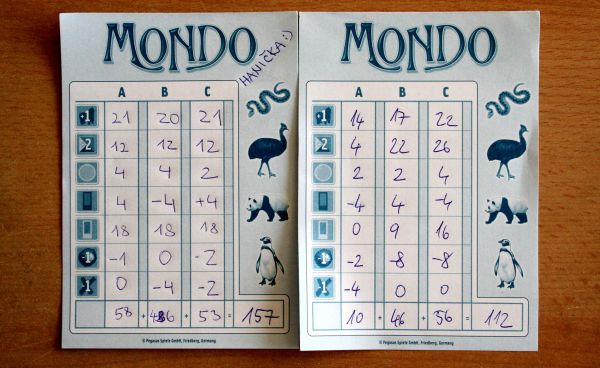 MONDO
HANIČKA:)
A B C
+1 21 20 21
>2 12 12 12
4 4 2
4 -4 +4
18 18 18
-1 -1 0 -2
1 0 -4 -2
58 + 46 + 53 = 157
© Pegasus Spiele GmbH, Friedberg, Germany
MONDO
A B C
+1 14 17 22
>2 4 22 26
2 2 4
-4 4 -4
0 9 16
-1 -2 -8 -8
1 -4 0 0
10 + 46 + 56 = 112
© Pegasus Spiele GmbH, Friedberg, Germany